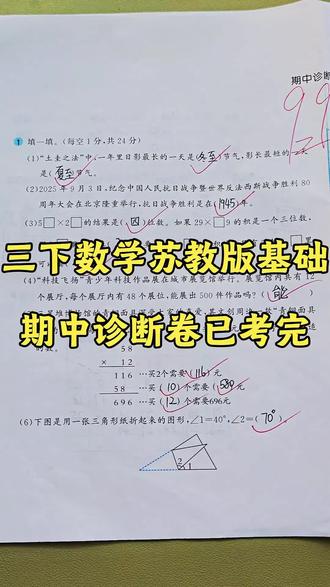 期中诊断
99
1 填一填。(每空1分,共24分)
(1)“土圭之法”中,一年里日影最长的一天是(冬至)节气,影长最短的一天
是(夏至)节气。
(2)2025年9月3日,纪念中国人民抗日战争暨世界反法西斯战争胜利80
周年大会在北京隆重举行,抗日战争胜利是在(1945)年。
(3)5□×2□的结果是(四)位数。如果29×□9的积是一个三位数,
三下数学苏教版基础
(4)“科技飞扬”青少年科技作品展在城市展览馆举行。展览馆内共有12
个展厅,每个展厅内有48个展位,能展出500件作品吗?(能)
期中诊断卷已考完
58
× 12
116 …买2个需要(116)元
58 …买(10)个需要(580)元
696 …买(12)个需要696元
(6)下图是用一张三角形纸折起来的图形,∠1=40°,∠2=(70°)。
2
1